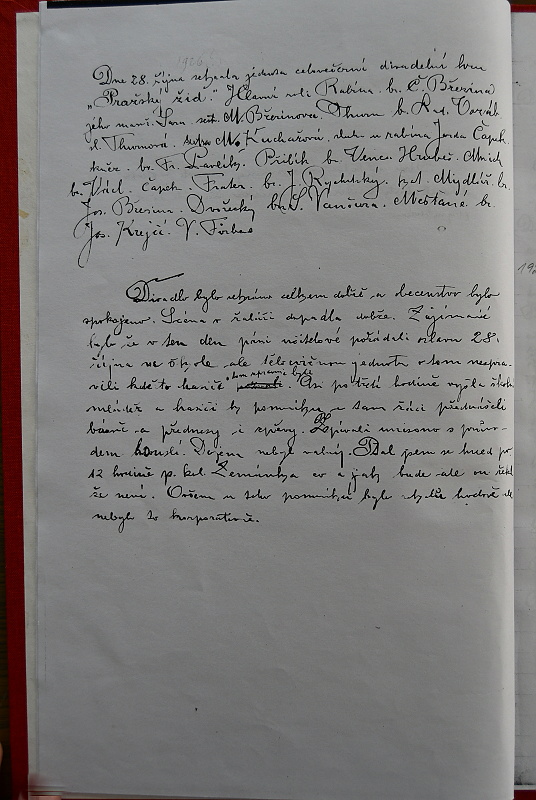 1926
Dne 28. října sehrála jednota celovečerní divadelní kus
„Pražský žid." Hlavní roli Rabína br. Č. Březina
jeho manž. sest. M. Březinova. Thurn b. Lad.
Thurnová. sestra M. Kuchařová. u rabína Jarda Čapek
br. Fr. Pavlík. Přibík br. Venc. Hrubeš. Mnich
br. Čapek. Frater. br. J. Rychetský. kat. Mydlář. br.
Jos. Březina. Dvořecký br. S. Vančura. Měšťané br.
Jos. Krejčí. V.
Divadlo bylo sehráno celkem dobře a obecenstvo bylo
spokojeno. Scéna v žaláři dopadla dobře. Zajímavé
bylo že v ten den páni učitelové pořádali oslavu 28.
října ve škole ale tělocvičnou jednotu o tom nezpra-
vili kdežto hasiči o tom zpraveni byli. Asi po třetí hodině vyšla školní
mládež a hasiči ku pomníku a tam žáci přednášeli
básně a přednesy i zpěvy. Zpívali unisono s průvo-
dem houslí. Dojem nebyl valný. Ptal jsem se hned po
12 hodině p. kol. Zemánka co a jak bude ale on řekl
že neví. Ovšem u toho pomníku bylo
nebylo to korporativně.